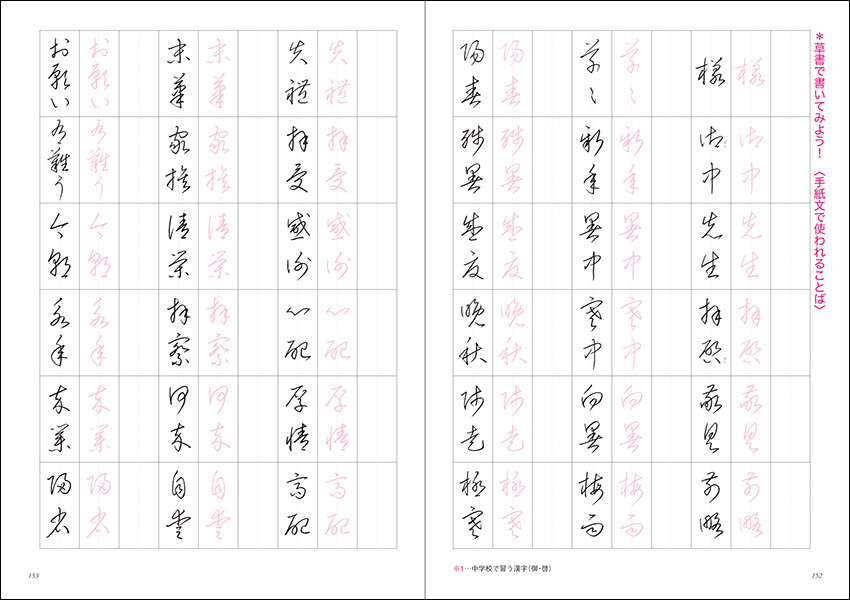 *草書で書いてみよう! 〈手紙文で使われることば〉
様 御中 先生 拝啓 敬具 前略
様 御中 先生 拝啓 敬具 前略
草々 新年 暑中 寒中 向暑 梅雨
草々 新年 暑中 寒中 向暑 梅雨
陽春 残暑 盛夏 晩秋 師走 極寒
陽春 残暑 盛夏 晩秋 師走 極寒
※1…中学校で習う漢字(御・啓)
152
失礼 拝受 感謝 心配 厚情 高配
失礼 拝受 感謝 心配 厚情 高配
末筆 家族 清栄 拝察 何卒 自愛
末筆 家族 清栄 拝察 何卒 自愛
お願い 有難う 今朝 卒業 帰省
お願い 有難う 今朝 卒業 帰省
153